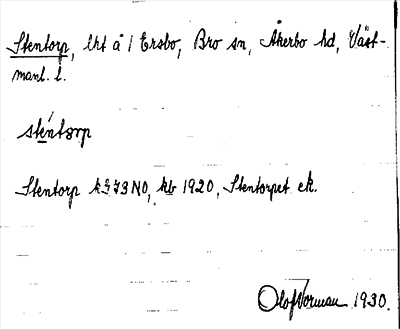 Stentorp, lht å 1 Ersbo, Bro sn, Åkerbo hd, Väst-
manl. l.
sténtɔrp
Stentorp k 373 NO, kb 1920, Stentorpet ek.
Olof Norman 1930.